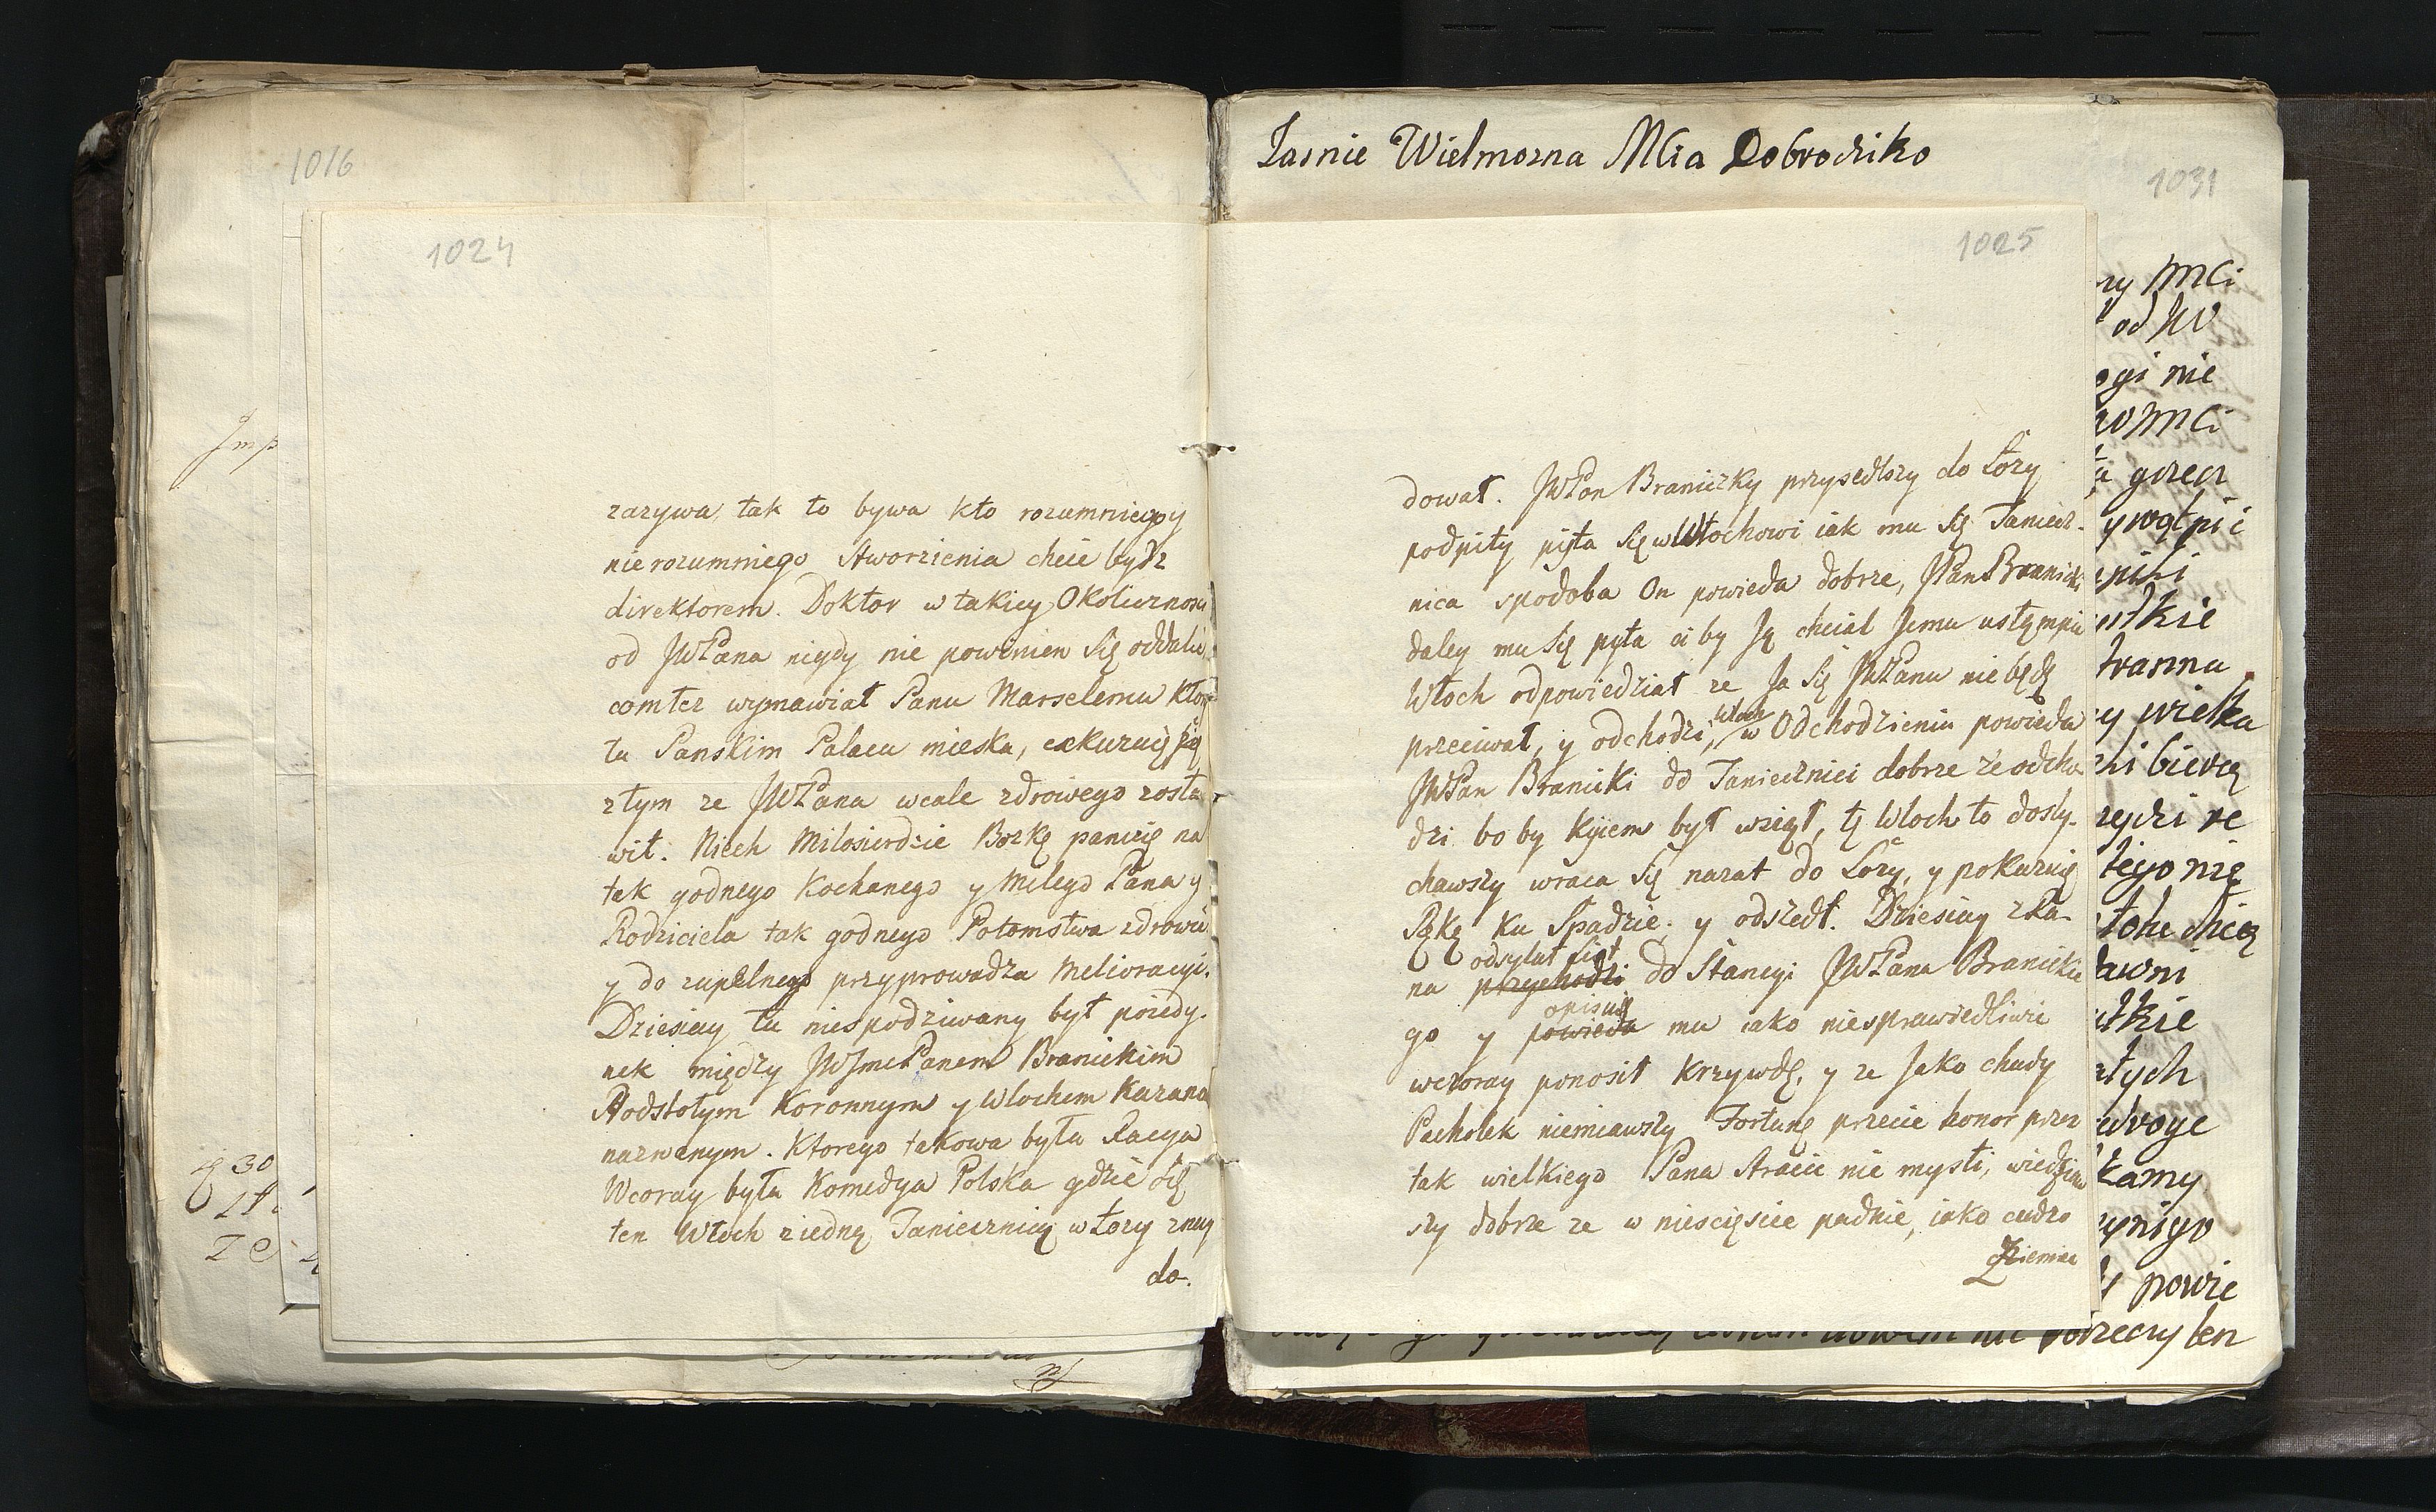 1016
Imp
30
1024
zazywa, tak to bywa kto rozumnieyszy
nierozumniego stworzienia chcie bydz
direktorem. Doktor w takiey Okoliznosci
od JWPana nigdy nie powinien się oddalić
comtez wymawiał Panu Marselemu ktory
tu Panskim Palacu mieska, exkuzuię się
z tym ze JWPana wcale zdrowego zosta
wił. Niech Milosierdzie Bozkę pamięę na
tak godnego Kochanego y Milego Pana y
Rodziciela tak godnego Potomstwa zdrowie
y do zupelnego przyprowadza Melioracyi.
Dziesiay tu niespodziwany był poiedy-
nek między JWJmcPanem Branickim
Podstolym Koronnym y Wlochem Kazana
nazwanym. Ktorego takowa była Racya
Wcoray była Komedya Polska gdzie się
ten Włoch ziednę Tanieznicę w Łozy znay
do-
Jasnie Wielmozna Mcia Dobrodziko
1031
1025
dował. JWPan Branizky przysedłszy do Łozy
podpity pyta się Włochowi iak mu się Taniecz-
nica spodoba On powieda dobrze, JPan Branicki
daley mu się pyta ci by Ją chciał Jemu ustęmpic
Włoch odpowiedział ze Ja Się JWPanu nie będę
przeciwał, y odchodzi, Wloch w Odchodzieniu powieda
JWPan Branicki do Taniecznici dobrze ze odcho
dzi bo by Kyiem był wzięł, tę Wloch to dosly-
chawszy wraca się nazat do Lozy, y pokazuię
Rękę ku Spadzie, y odszedł. Dziesiay z Ra-
odsylał list
na przychodzi do Stancyi JWPana Branickie
opisuię
go y powieda mu iako niesprawiedliwie
wczoray ponosił krzywdę, y ze Jako chudy
Pacholek niemiawszy Fortunę przecie honor przez
tak wielkiego Pana stracic nie mysli, wiedziaw
szy dobrze ze w niescięscie padnie, iako cudzo
Ziemiec
ry Mci
od JW
ogi nie
Mci
grecz
y wątpi i
wielka
bierę
tego nię
dawni
kamy
powie